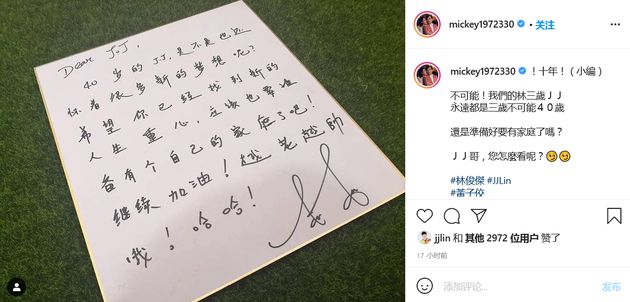 Dear J.J,
40岁的J.J,是不是也还
怀着很多新的梦想呢?
希望你已经找到新的
人生重心,应该也準
备有个自己的家庭了吧!
继续加油!越老越帅
哦!哈哈!
mickey1972330 • 关注
mickey1972330 ！十年！（小編）
不可能！我們的林三歲ＪＪ
永遠都是三歲不可能４０歲
還是準備好要有家庭了嗎？
ＪＪ哥，您怎麼看呢？😏😏
#林俊傑 #JJLin
#黃子佼
jjlin 和 其他 2972 位用户 赞了
17 小时前
添加评论...
发布